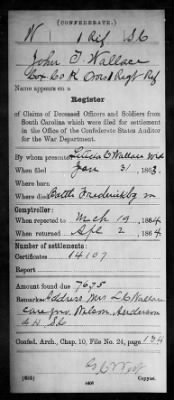 (CONFEDERATE.)
W 1 Rifl SC
John T Wallace
Co K Orrs Regt Rif
Name appears on a
Register
of Claims of Deceased Officers and Soldiers from
South Carolina which were filed for settlement
in the Office of the Confederate States Auditor
for the War Department.
By whom presented Letitia C Wallace Wid
When filed Jan 31, 1863.
Where born
Where died Battle Fredericksbg
Comptroller:
When reported to Mch 19, 1864
When returned Apl 2, 1864
Number of settlement:
Certificates 14107
Report
Amount found due 7635
Remarks: Address Mrs L C Wallace
care Jno Wilson, Anderson
C H SC
Confed. Arch., Chap. 10, File No. 24, page 134
Copyist.